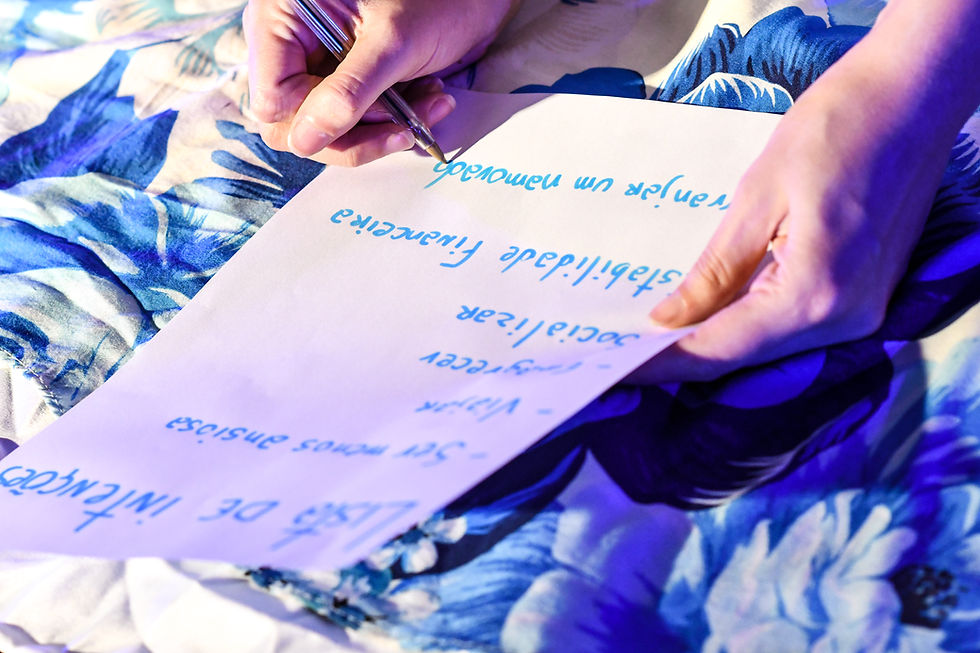 LISTA DE INTENÇÕES
- Ser menos ansiosa
- Viajar
-
Socializar
stabilidade Financeira
rranjar um namorado